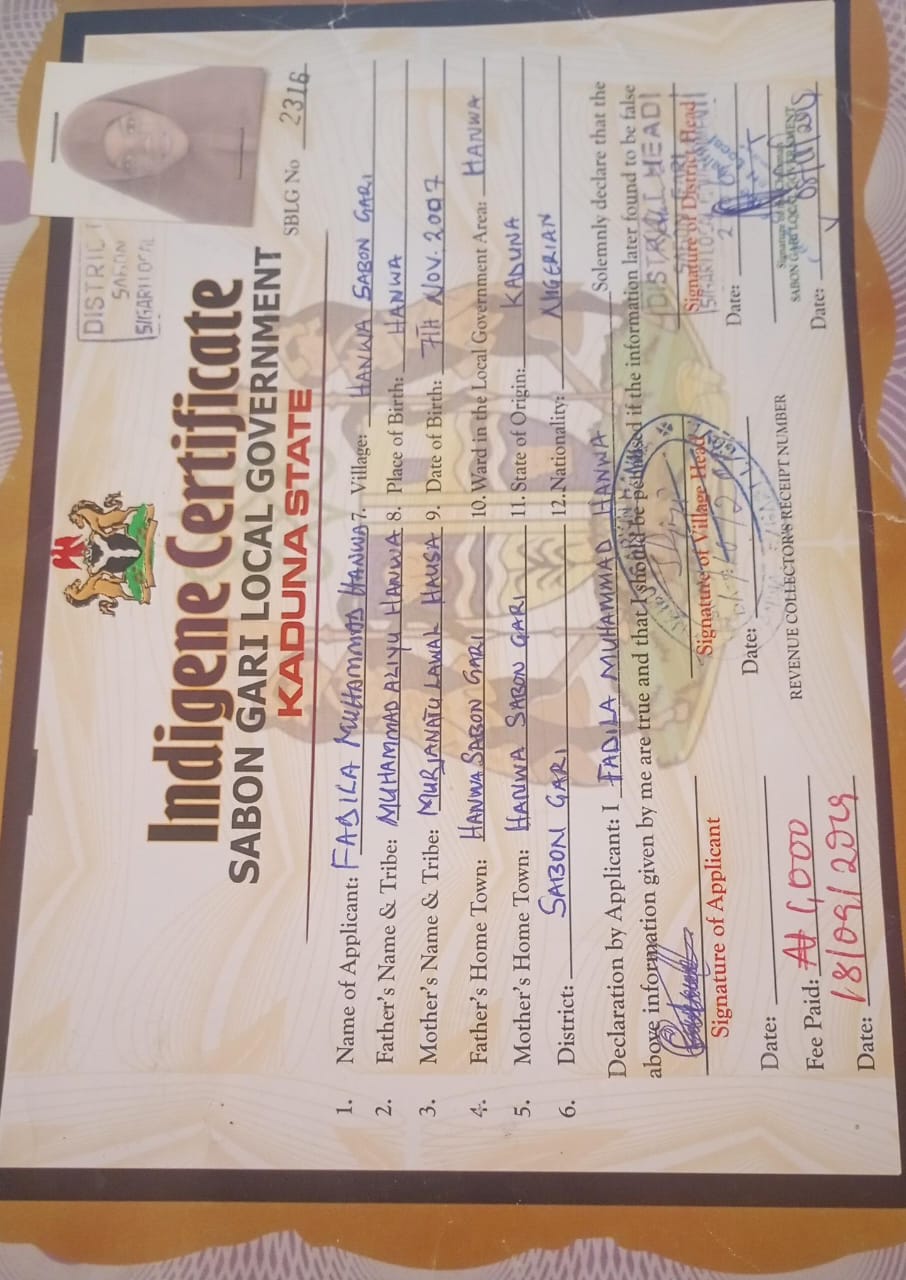 DISTRICT
SABON
S/GARI LOCAL
Indigene Certificate
SABON GARI LOCAL GOVERNMENT
KADUNA STATE
SBLG No 2316
1. Name of Applicant: FADILA MUHAMMAD HANWA 7. Village: HANWA SABON GARI
2. Father's Name & Tribe: MUHAMMAD ALIYU HANWA 8. Place of Birth: HANWA
3. Mother's Name & Tribe: MURJANATU LAWAL HAUSA 9. Date of Birth: 7TH NOV. 2007
4. Father's Home Town: HANWA SABON GARI 10. Ward in the Local Government Area: HANWA
5. Mother's Home Town: HANWA SABON GARI 11. State of Origin: KADUNA
6. District: SABON GARI 12. Nationality: NIGERIAN
Declaration by Applicant: I FADILA MUHAMMAD HANWA Solemnly declare that the
above information given by me are true and that I should be penalised if the information later found to be false
DISTRICT HEAD
Signature of Applicant Signature of Village Head Signature of District Head
Date: Date: Date:
SABON GARI LOCAL GOVERNMENT
Fee Paid: ₦ 1,000 REVENUE COLLECTOR'S RECEIPT NUMBER
Date: 18/09/2019 Date: